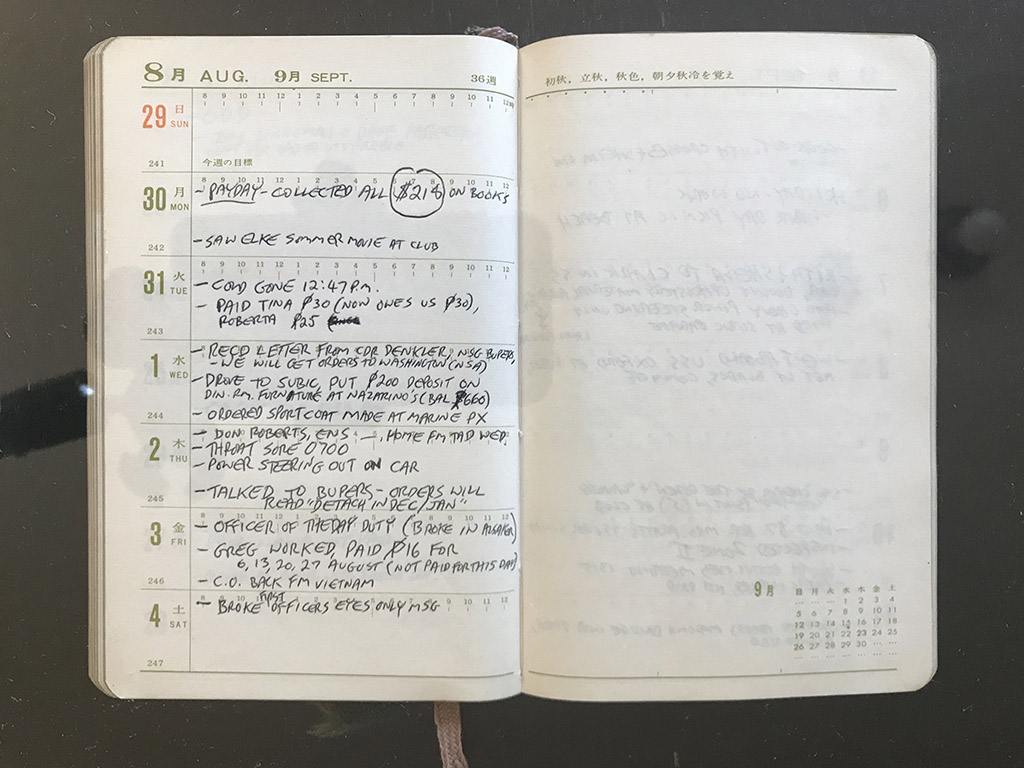 8月 AUG. 9月 SEPT. 36週
8 9 10 11 12 1 2 3 4 5 6 7 8 9 10 11 12
29 日 SUN
241 今週の目標
30 月 MON
- PAYDAY - COLLECTED ALL $218 ON BOOKS
242
- SAW ELKE SOMMER MOVIE AT CLUB
31 火 TUE
- COLD GONE 12:47 P.M.
- PAID TINA $30 (NOW OWES US $30),
ROBERTA $25
243
1 水 WED
- RECD LETTER FROM CDR DENKLER, NSG BUPERS,
- WE WILL GET ORDERS TO WASHINGTON (NSA)
- DROVE TO SUBIC, PUT $200 DEPOSIT ON
DIN. RM. FURNATURE AT NAZARINO'S (BAL $660)
244
- ORDERED SPORT COAT MADE AT MARINE PX
2 木 THU
- DON ROBERTS, ENS, HOME FM TAD WED.
- THROAT SORE 0700
- POWER STEERING OUT ON CAR
245
- TALKED TO BUPERS - ORDERS WILL
READ "DETACH IN DEC/JAN"
3 金 FRI
- OFFICER OF THE DAY DUTY (BROKE IN
- GREG WORKED, PAID $16 FOR
6, 13, 20, 27 AUGUST (NOT PAID FOR THIS DAY)
246
- C.O. BACK FM VIETNAM
4 土 SAT
- BROKE FIRST OFFICERS EYES ONLY MSG
247
初秋，立秋，秋色，朝夕秋冷を覚え
9月
日 月 火 水 木 金 土
... ... ... 1 2 3 4
5 6 7 8 9 10 11
12 13 14 15 16 17 18
19 20 21 22 23 24 25
26 27 28 29 30 ... ...